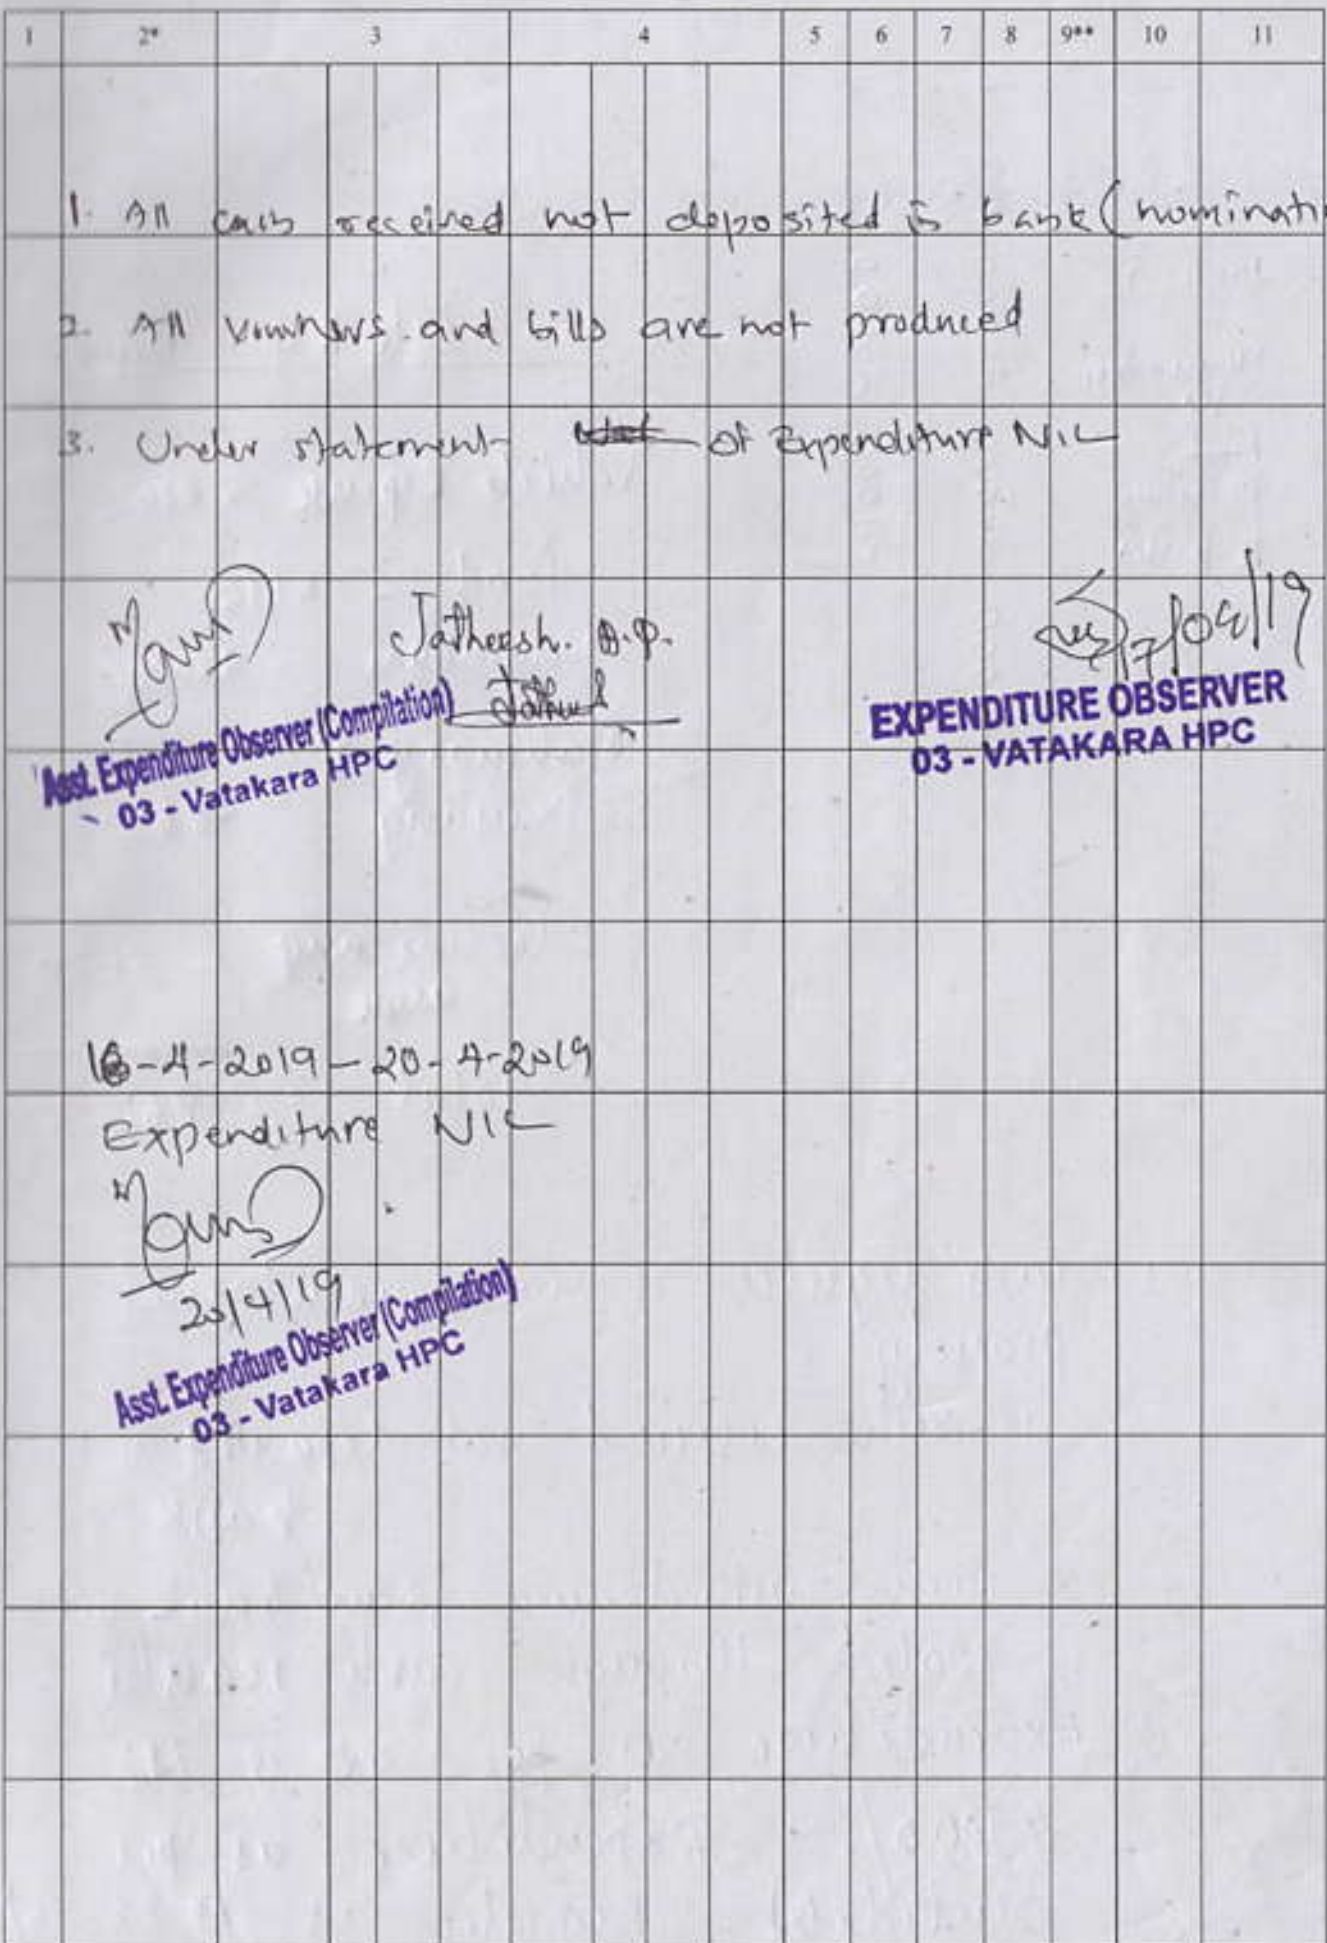 1 2* 3 4 5 6 7 8 9** 10 11
1. All cash received not deposited in bank (nominati
2. All vouchers and bills are not produced
3. Under statement of Expenditure NIL
Jatheesh. A.P.
17/04/19
Asst. Expenditure Observer (Compilation)
03 - Vatakara HPC
EXPENDITURE OBSERVER
03 - VATAKARA HPC
16-4-2019 - 20-4-2019
Expenditure NIL
20/4/19
Asst. Expenditure Observer (Compilation)
03 - Vatakara HPC